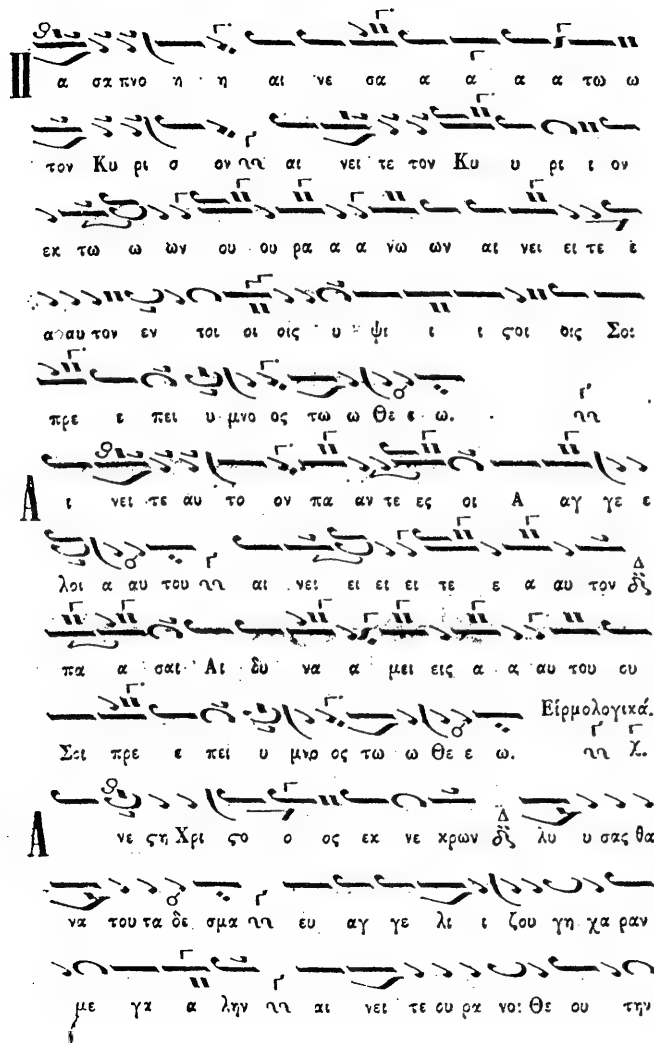 Π α σα πνο η η αι νε σα α α α α τω ω
τον Κυ ρι ο ον αι νει τε τον Κυ υ ρι ι ον
εκ τω ω ων ου ου ρα α α νω ων αι νει ει τε ε
α αυ τον εν τοι οι οις υ ψι ι ι ςοι οις Σοι
πρε ε πει υ μνο ος τω ω Θε ε ω.
Α ι νει τε αυ το ον πα αν τε ες οι Α αγ γε ε
λοι α αυ του αι νει ει ει ει τε ε α αυ τον
πα α σαι Αι δυ να α μει εις α α αυ του ου
Εἱρμολογικά.
Σοι πρε ε πει υ μνο ος τω ω Θε ε ω.
Α νε ςη Χρι ςο ο ος εκ νε κρων λυ υ σας θα
να του τα δε σμα ευ αγ γε λι ι ζου γη χα ραν
με γα α λην αι νει τε ου ρα νοι Θε ου την